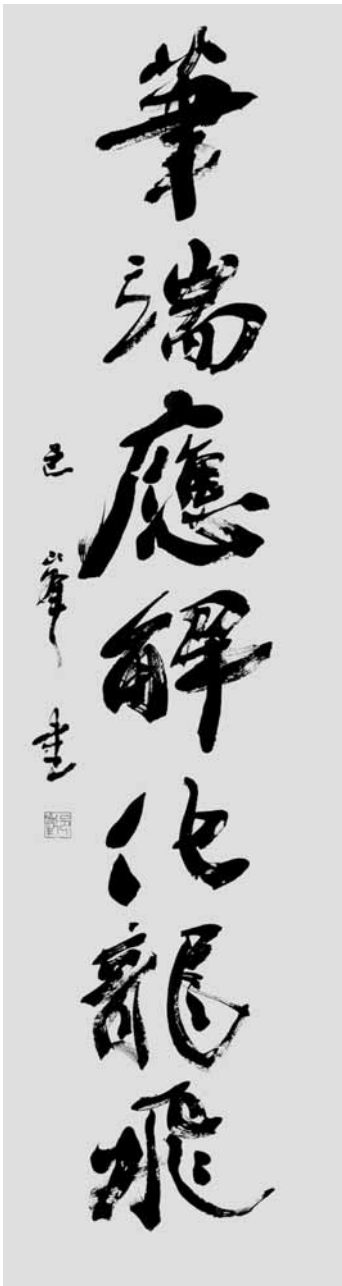 筆端應解化龍飛
峯書